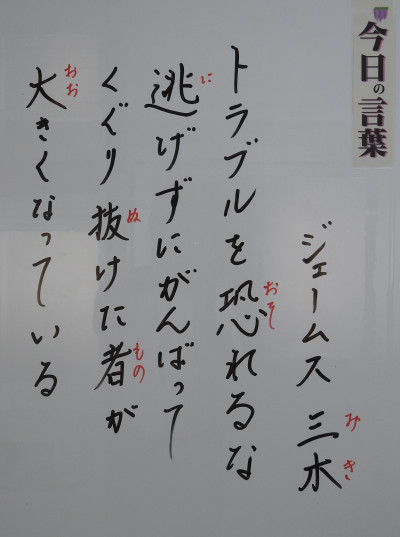 今日の言葉
ジェームス三木
トラブルを恐れるな
逃げずにがんばって
くぐり抜けた者が
大きくなっている
み
き
おそ
に
ぬ
もの
おお